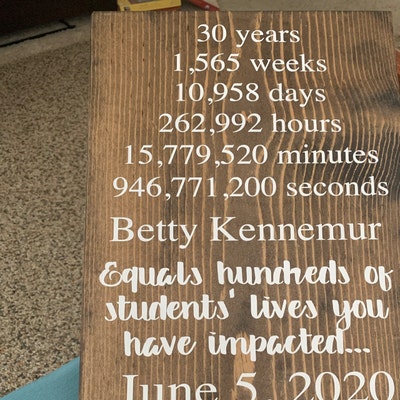 30 years
1,565 weeks
10,958 days
262,992 hours
15,779,520 minutes
946,771,200 seconds
Betty Kennemur
Equals hundreds of
students' lives you
have impacted...
June 5, 2020